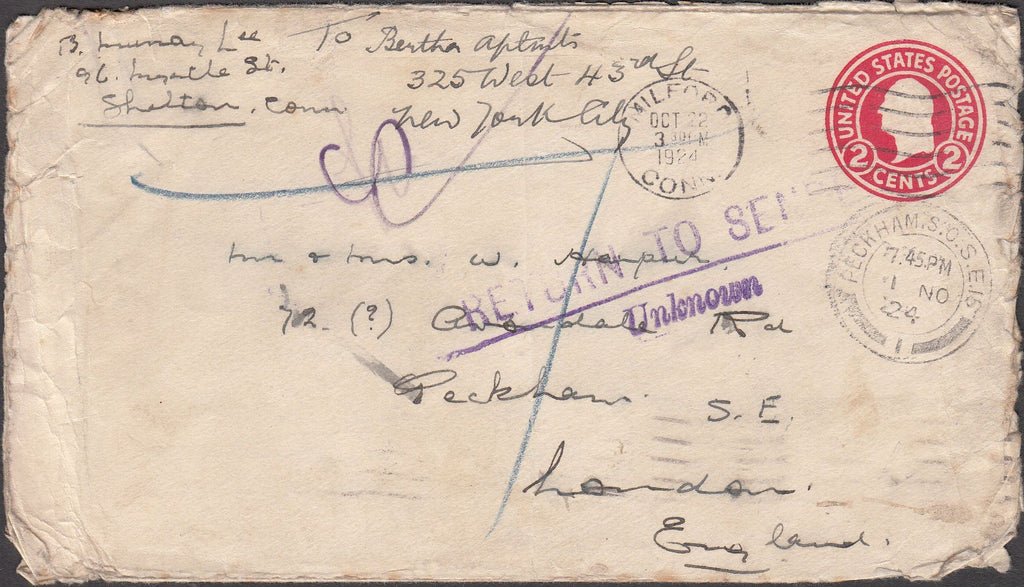 B. Murray Lee
96. Myrtle St.
Shelton, Conn
To Bertha Aptmts
325 West 43rd St
New York City
MILFORD
OCT 22
3 30PM
1924
CONN.
UNITED STATES POSTAGE
2 CENTS 2
RETURN TO SENDER
Unknown
PECKHAM. S.O. S.E.15
7.45PM
1 NO
24
1
Mr & Mrs. W. Harper.
72. (?) Avondale Rd
Peckham. S.E.
London.
England.